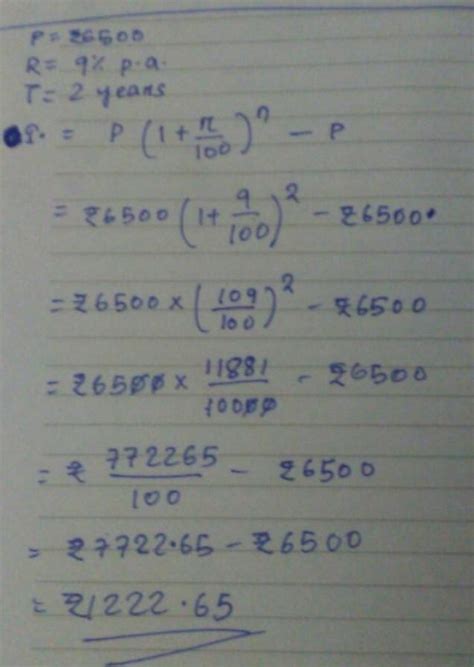 P = ₹6500
R = 9% p.a.
T = 2 years
I. = P (1 + r/100)^n − P
= ₹6500 (1 + 9/100)^2 − ₹6500.
= ₹6500 × (109/100)^2 − ₹6500
= ₹6500 × 11881/10000 − ₹6500
= ₹ 772265/100 − ₹6500
= ₹7722.65 − ₹6500
= ₹1222.65